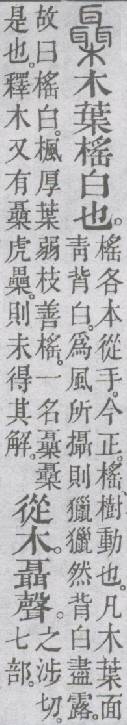 木葉榣白也。
榣各本從手。今正。榣樹動也。凡木葉面
青背白。爲風所攝則獵獵然背白盡露。
故曰榣白。楓厚葉弱枝善榣。一名欇欇
是也。釋木又有欇虎櫐。則未得其解。
從木。聶聲。
之涉切。
七部。